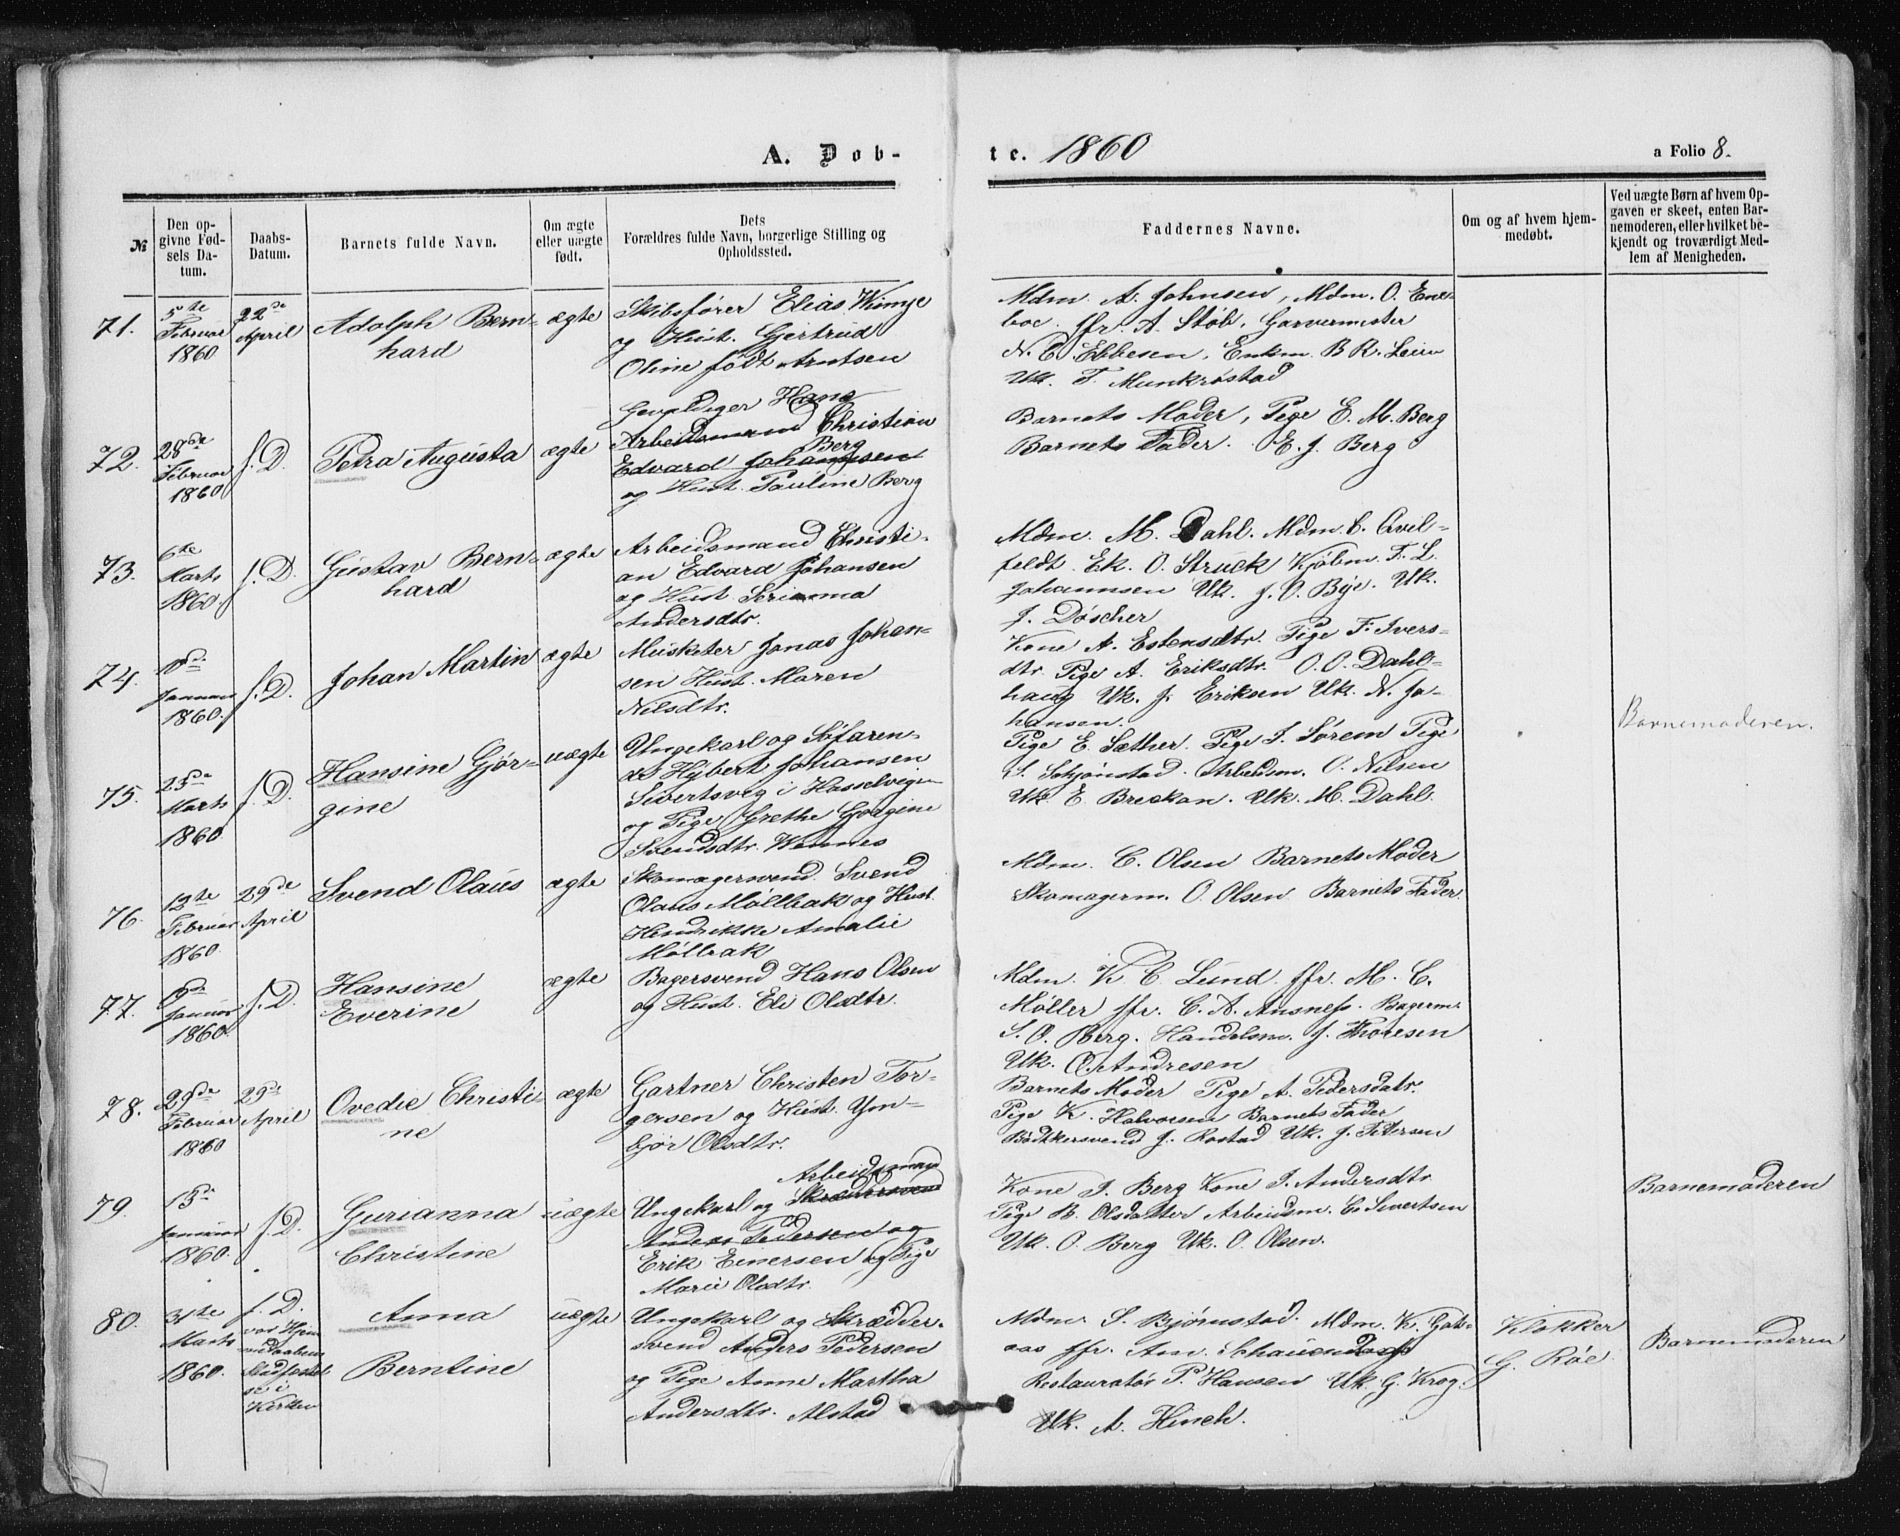 A. Dob-
te. 1860
a Folio 8.
№
Den op-
givne Fød-
sels Da-
tum.
Daabs-
Datum.
Barnets fulde Navn.
Om ægte
eller uægte
født.
Dets
Forældres fulde Navn, borgerlige Stilling og
Opholdssted.
Faddernes Navne.
Om og af hvem hjem-
medøbt.
Ved uægte Børn af hvem Op-
gaven er skeet, enten Bar-
nemoderen, eller hvilket be-
kjendt og troværdigt Med-
lem af Menigheden.
71.
5te
Februar
1860
22de
April
Adolph Bern-
hard
ægte
Skibsfører Elias
og Hust. Gjertrud
Oline født Arntsen
Mdm. A. Johnsen, Mdm. O. Ene-
boe. Jfr. A. Støb. Garvermester
N. C. Ebbesen, Enkm. B R. Leira
Uk. T. Munkrøstad
72.
28de
Februar
1860
f. D.
Petra Augusta
ægte
Gevaldiger Hans
Arbeidsmand Christian
Berg
Edvard Johannsen
og Hust. Pauline Berg
Barnets Moder, Pige E. M. Berg
Barnets Fader. E. J. Berg
73.
6te
Marts
1860.
f. D.
Gustav Bern-
hard
ægte
Arbeidsmand Christi-
an Edvard Johansen
og Hust. Serianna
Andersdtr.
Mdm. M. Dahl. Mdm. C. Qvil-
feldt. Ek. O. Struck Kjøbm. F. L.
Johannsen Uk. J. O. Bye. Uk.
J. Døscher
74.
Januar
1860.
f. D.
Johan Martin
ægte
Musketer Jonas Johan-
sen Hust. Maren
Nilsdtr.
Kone A. Estensdtr. Pige F. Ivers-
dtr. Pige A. Eriksdtr. O. O. Dahl-
haug Uk. J. Eriksen Uk. N. Jo-
hansen.
75.
25de
Marts
1860
f. D.
Hansine Gjør-
gine
uægte
Ungekarl og Søfaren-
de Hybert Johansen
Sivertsveg i Hasselvigen
og Pige Grethe Gørgine
Svendsdtr. Wennes
Pige E. Sæther. Pige J. Sørem Pige
S. Schjønstad. Arbeidsm. O. Nilsen
Uk. E. Breckan. Uk. M. Dahl.
Barnemoderen.
76.
12te
Februar
1860.
29de
April
Svend Olaus
ægte
Skomagersvend. Svend
Olaus Møllbak og Hust.
Hendrikke Amalie
Møllbak
Mdm. C. Olsen Barnets Moder
Skomagerm. O. Olsen Barnets Fader.
77.
Januar
1860.
f. D.
Hansine
Everine
ægte
Bagersvend Hans Olsen
og Hust. Eli Olsdtr.
Mdm. K C. Lund. Jfr. M. C.
Møller Jfr. C. A. Ausness. Bagerm.
S. O. Berg. Handelsm. J. Thoresen
Uk. O. Andresen
78.
29de
Februar
1860
29de
April
Ovedie Christi-
ne
ægte
Gartner Christen Tor-
gersen og Hust. Yn-
gjør Olsdtr.
Barnets Moder Pige A. Pedersdatr.
Pige K. Halvorsen Barnets Fader
Bødtkersvend J. Rostad Uk. J. Petersen
79.
15de
Januar
1860.
f. D.
Gurianna
Christine
uægte
Arbeidsmand
Ungekarl og Skræddersvend
Anders Pedersen og
Erik Einersen og Pige
Marie Olsdtr.
Kone J. Berg Kone J. Andersdtr.
Pige B. Olsdatter Arbeidsm. E. Sivertsen
Uk. O. Berg Uk. O. Olsen.
Barnemoderen
80.
31te
Marts
1860.
f. D.
var Hjem
medaaben
Stadfæstel
se i
Kirken
Anna
Berntine
uægte
Ungekarl og Skrædder-
svend Anders Pedersen
og Pige Anne Martha
Andersdtr. Alstad
Mdm. S. Bjørnstad. Mdm. K. Gat-
aas Jfr. Am. Schauendorff
Restauratør P. Hansen Uk. G. Krog.
Uk. A. Hinch.
Klokker
G. Røe.
Barnemoderen